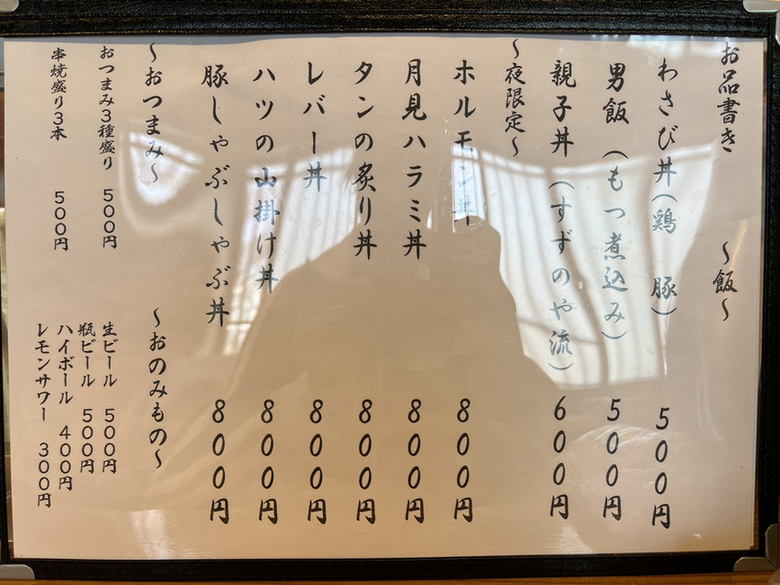 お品書き　～飯～
わさび丼(鶏　豚)　500円
男飯(もつ煮込み)　500円
親子丼(すずのや流)　600円
～夜限定～
ホルモン丼　800円
月見ハラミ丼　800円
タンの炙り丼　800円
レバー丼　800円
ハツの山掛け丼　800円
豚しゃぶしゃぶ丼　800円
～おつまみ～
おつまみ3種盛り　500円
串焼盛り3本　500円
～おのみもの～
生ビール　500円
瓶ビール　500円
ハイボール　400円
レモンサワー　300円